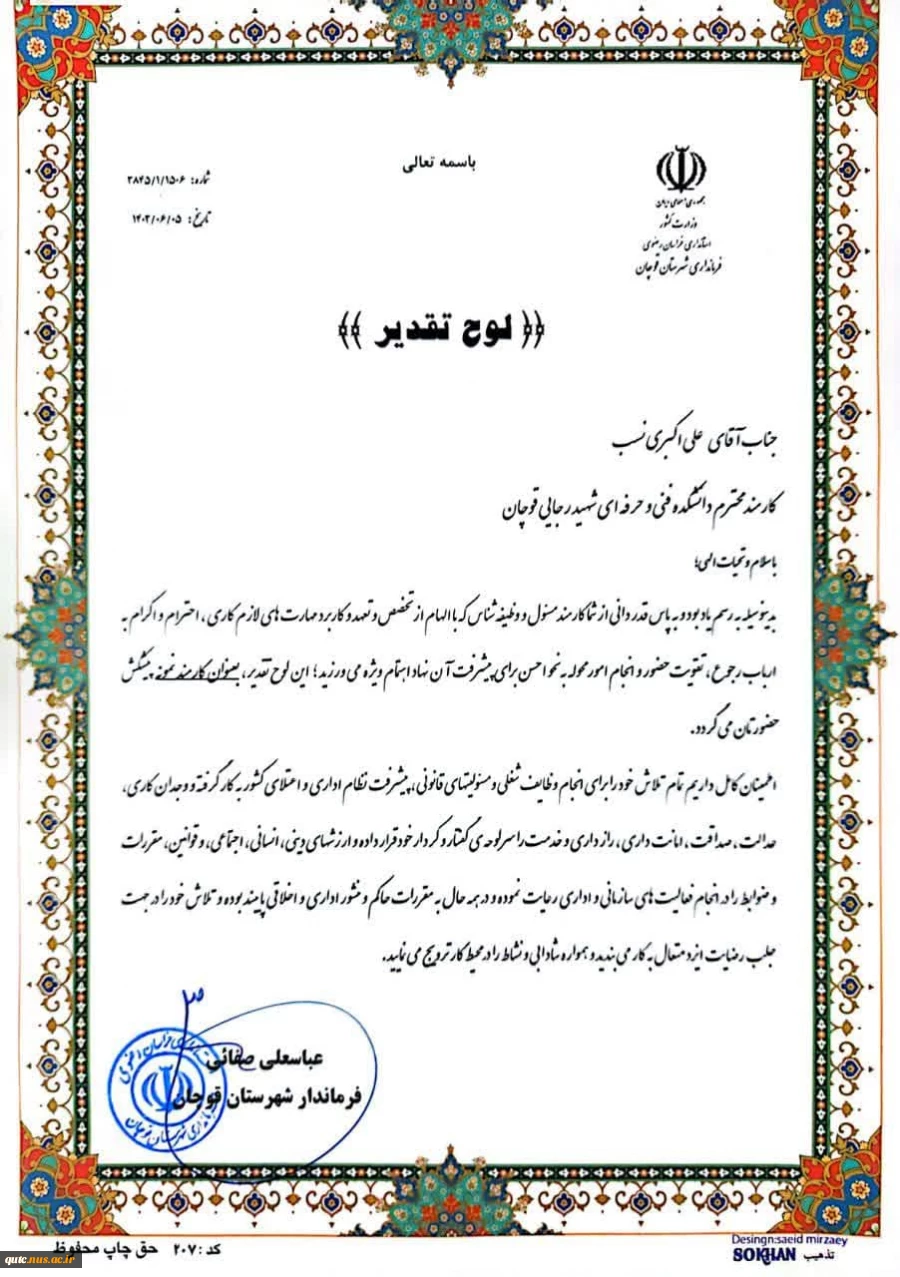 باسمه تعالی
شماره: ۲۸۴۵/۱/۱۵۰۶
تاریخ: ۱۴۰۲/۰۶/۰۵
جمهوری اسلامی ایران
وزارت کشور
استانداری خراسان رضوی
فرمانداری شهرستان قوچان
﴿﴿ لوح تقدیر ﴾﴾
جناب آقای علی اکبری نسب
کارمند محترم دانشکده فنی و حرفه ای شهید رجایی قوچان
با سلام و تحیات الهی؛
بدینوسیله به رسم یادبود و به پاس قدر دانی از شما کارمند مسئول و وظیفه شناس که با الهام از تخصص و تعهد و کاربرد مهارت های لازم کاری، احترام و اکرام به
ارباب رجوع، تقویت حضور و انجام امور محوله به نحو احسن برای پیشرفت آن نهاد اهتمام ویژه می ورزید؛ این لوح تقدیر، بعنوان کارمند نمونه پیشکش
حضورتان می گردد.
اطمینان کامل داریم تمام تلاش خود را برای انجام وظایف شغلی و مسئولیتهای قانونی، پیشرفت نظام اداری و اعتلای کشور به کار گرفته و وجدان کاری،
عدالت، صداقت، امانت داری، رازداری و خدمت را سرلوحه ی گفتار و کردار خود قرار داده و ارزشهای دینی، انسانی، اجتماعی، و قوانین، مقررات
و ضوابط را در انجام فعالیت های سازمانی و اداری رعایت نموده و در همه حال به مقررات حاکم و منشور اداری و اخلاقی پایبند بوده و تلاش خود را در جهت
جلب رضایت ایزد متعال به کار می بندید و همواره شادابی و نشاط را در محیط کار ترویج می نمایید.
عباسعلی صفائی
فرماندار شهرستان قوچان
کد: ۲۰۷ حق چاپ محفوظ
Desingn:saeid mirzaey
تذهیب SOKHAN
qutc.nus.ac.ir